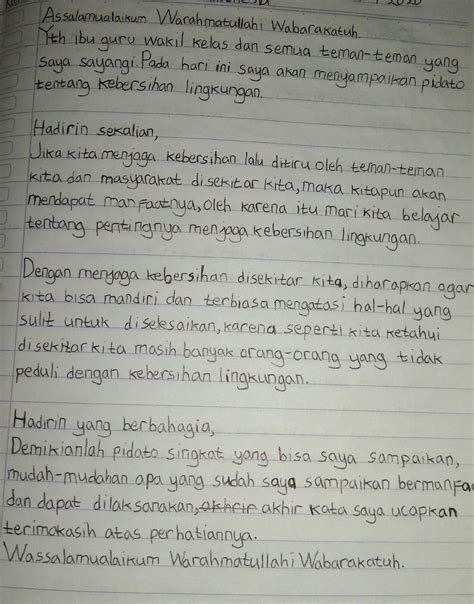 2020
Assalamualaikum Warahmatullahi Wabarakatuh.
Yth ibu guru wakil kelas dan semua teman-teman yang
saya sayangi. Pada hari ini saya akan menyampaikan pidato
tentang kebersihan lingkungan.
Hadirin sekalian,
Jika kita menjaga kebersihan lalu ditiru oleh teman-teman
kita dan masyarakat disekitar kita, maka kitapun akan
mendapat manfaatnya, oleh karena itu mari kita belajar
tentang pentingnya menjaga kebersihan lingkungan.
Dengan menjaga kebersihan disekitar kita, diharapkan agar
kita bisa mandiri dan terbiasa mengatasi hal-hal yang
sulit untuk diselesaikan, karena seperti kita ketahui
disekitar kita masih banyak orang-orang yang tidak
peduli dengan kebersihan lingkungan.
Hadirin yang berbahagia,
Demikianlah pidato singkat yang bisa saya sampaikan,
mudah-mudahan apa yang sudah saya sampaikan bermanfa
dan dapat dilaksanakan, akhir kata saya ucapkan
terimakasih atas perhatiannya.
Wassalamualaikum Warahmatullahi Wabarakatuh.